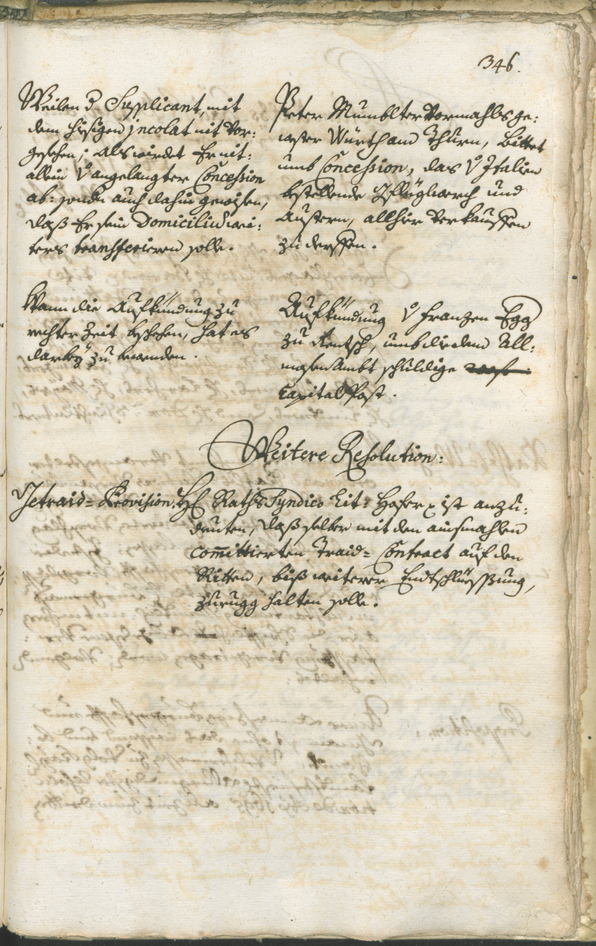 346.
Weilen d. Supplicant, mit
dem hiesigen jncolat nit Vor:
gesehen; als wirdet Er nit:
allein v angelangter Concession
ab: sondern auch dahin gewisen,
daß Er sein Domicilium wei:
ters transferieren solle.
Peter Mumbler Vormahls ge:
wester Würth am Thurn, bittet
umb Concession, das v Italien
bestellende Gflüglwerch und
Austern, allhier Verkauffen
zu derffen.
Wann die Aufkündung zu
rechter Zeit beschehen, hat es
darbey zu bewenden.
Aufkündung v Franzen Egg
zu Rentsch, umb die dem All:
mosenambt schuldige
Capital Post.
Weitere Resolution:
Getraid= Provision. H: Raths Syndico Lit: Hofer ist anzu:
deuten, daß selber mit den ainsmahlen
committierten Traid= Contract auf den
Ritten, biß weiterer Endtschlüessung,
zurugg halten solle.